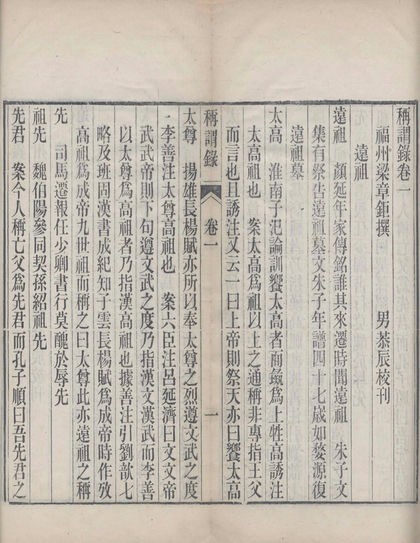 稱謂錄卷一
福州梁章鉅撰 男恭辰校刊
遠祖
遠祖 顏延年家傳銘誰其來遷時聞遠祖 朱子文
集有祭告遠祖墓文朱子年譜四十七歲如婺源復
遠祖墓
太高 淮南子氾論訓饗太高者而彘為上牲高誘注
太高祖也 案太高為祖以上之通稱非專指王父
而言也且誘注又云一曰上帝則祭天亦曰饗太高
稱謂錄 卷一 一
太尊 揚雄長楊賦亦所以奉太尊之烈遵文武之度
李善注太尊高祖也 案六臣注呂延濟曰文文帝
武武帝則下句遵文武之度乃指漢文漢武而李善
以太尊為高祖者乃指漢高祖也據善注引劉歆七
略及班固漢書成紀知子雲長楊賦為成帝時作攷
高祖為成帝九世祖而稱之曰太尊此亦遠祖之稱
先 司馬遷報任少卿書行莫醜於辱先
祖先 魏伯陽參同契孫紹祖先
先君 案今人稱亡父為先君而孔子順曰吾先君之